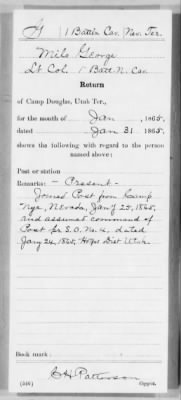 G | 1 Batt'n Cav. Nev. Ter.
Milo George
Lt Col., 1 Batt. N. Cav.
Return
of Camp Douglas, Utah Ter.,
for the month of Jan, 1865.
dated Jan 31 1865.
shows the following with regard to the person
named above:
Post or station
Remarks: - Present -
Joined Post from Camp
Nye, Nevada, Jany 25, 1865,
and assumed command of
Post pr S.O. No. 4, dated
Jany 24, 1865, Hdqrs Dist Utah
Book mark:
C H Patterson
(546) Copyist.